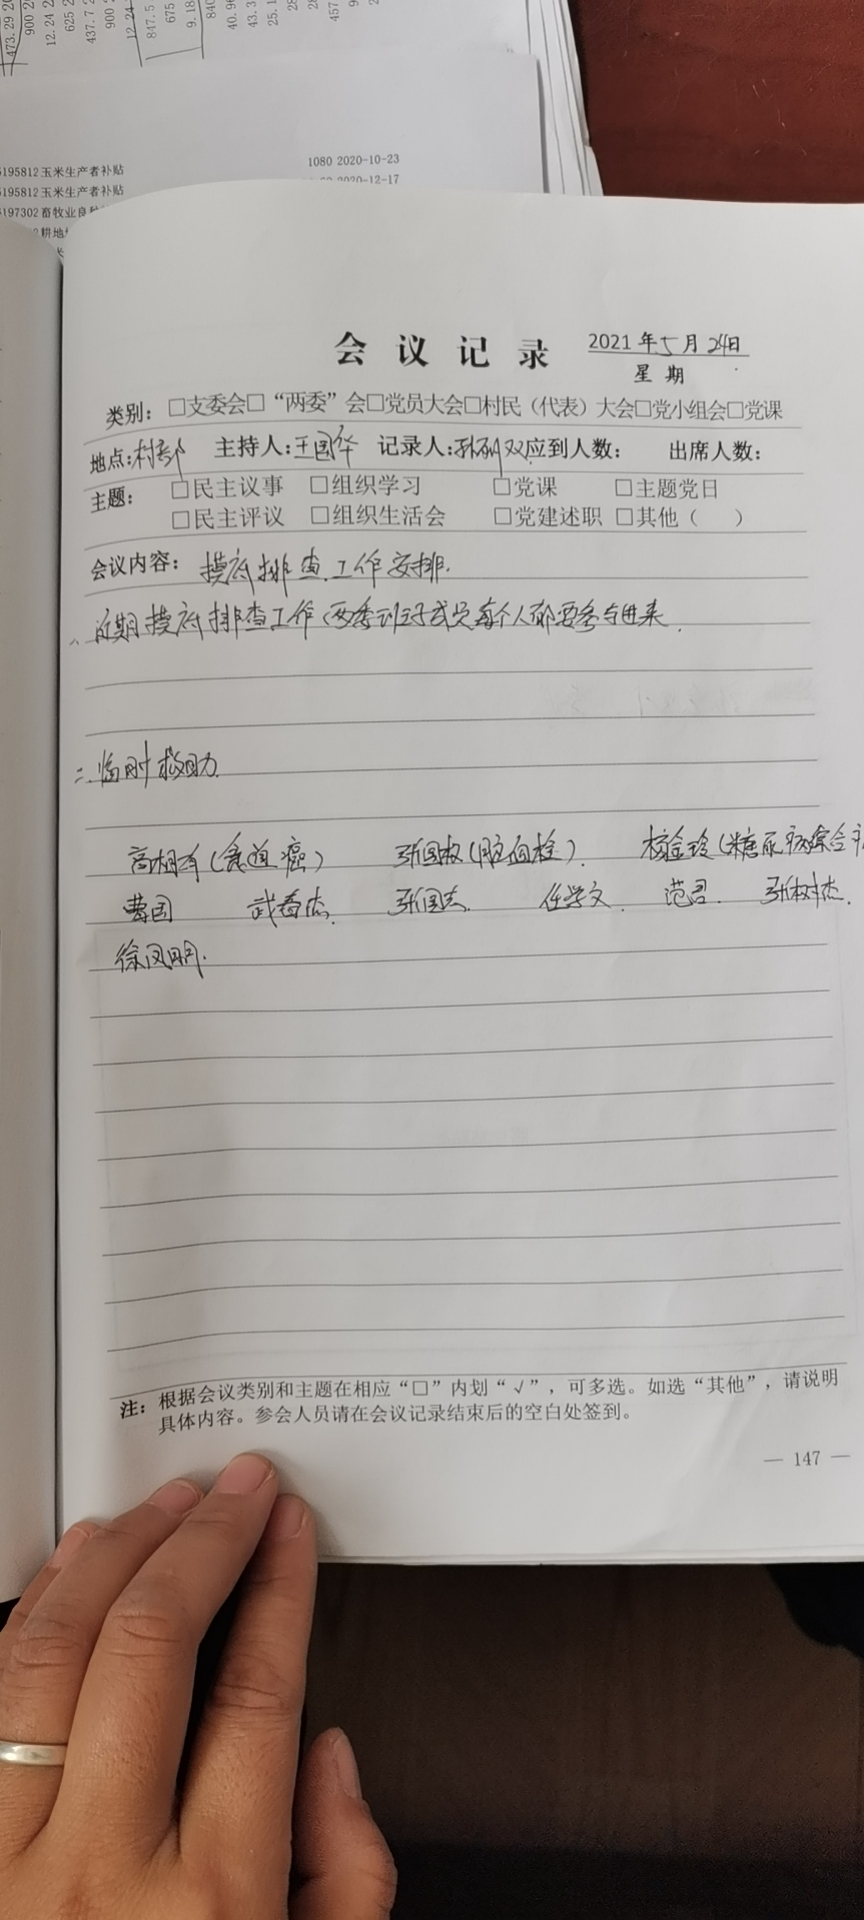 473.29
900
12.24
625
437.7
900
12.24
847.5
675
9.18
840
40.96
43.3
25.1
457
195812玉米生产者补贴 1080 2020-10-23
195812玉米生产者补贴 2020-12-17
197302畜牧业良种
耕地
会议记录
2021年5月24日
星期
类别：□支委会□“两委”会□党员大会□村民（代表）大会□党小组会□党课
地点：村部 主持人：王国华 记录人： 应到人数： 出席人数：
主题： □民主议事 □组织学习 □党课 □主题党日
□民主评议 □组织生活会 □党建述职 □其他（ ）
会议内容：摸底排查工作安排.
近期摸底排查工作，两委班子成员每个人都要参与进来.
二.临时救助
高相有（食道癌） 张国权（脑血栓）. （糖尿病综合
曹国 武春杰. 张国志. 任学文. 范君. 张树杰.
徐凤明.
注：根据会议类别和主题在相应“□”内划“√”，可多选。如选“其他”，请说明
具体内容。参会人员请在会议记录结束后的空白处签到。
— 147 —